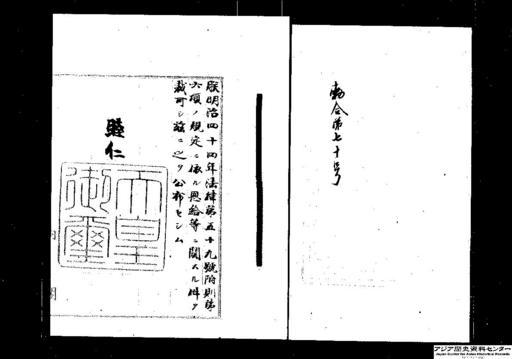 勅令第七十号
朕明治四十四年法律第五十九號附則第
六項ノ規定ニ依ル恩給等ニ關スル件ヲ
裁可シ茲ニ之ヲ公布セシム
睦仁
天皇
御璽
アジア歴史資料センター
Japan Center for Asian Historical Records